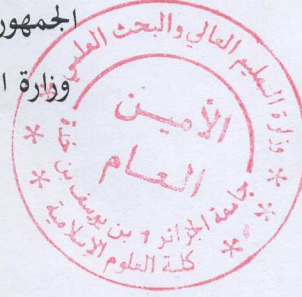 الجمهور
وزارة ا
وزارة التعليم العالي والبحث العلمي
الأمين
العام
جامعة الجزائر 1 بن يوسف بن خدة
كلية العلوم الإسلامية